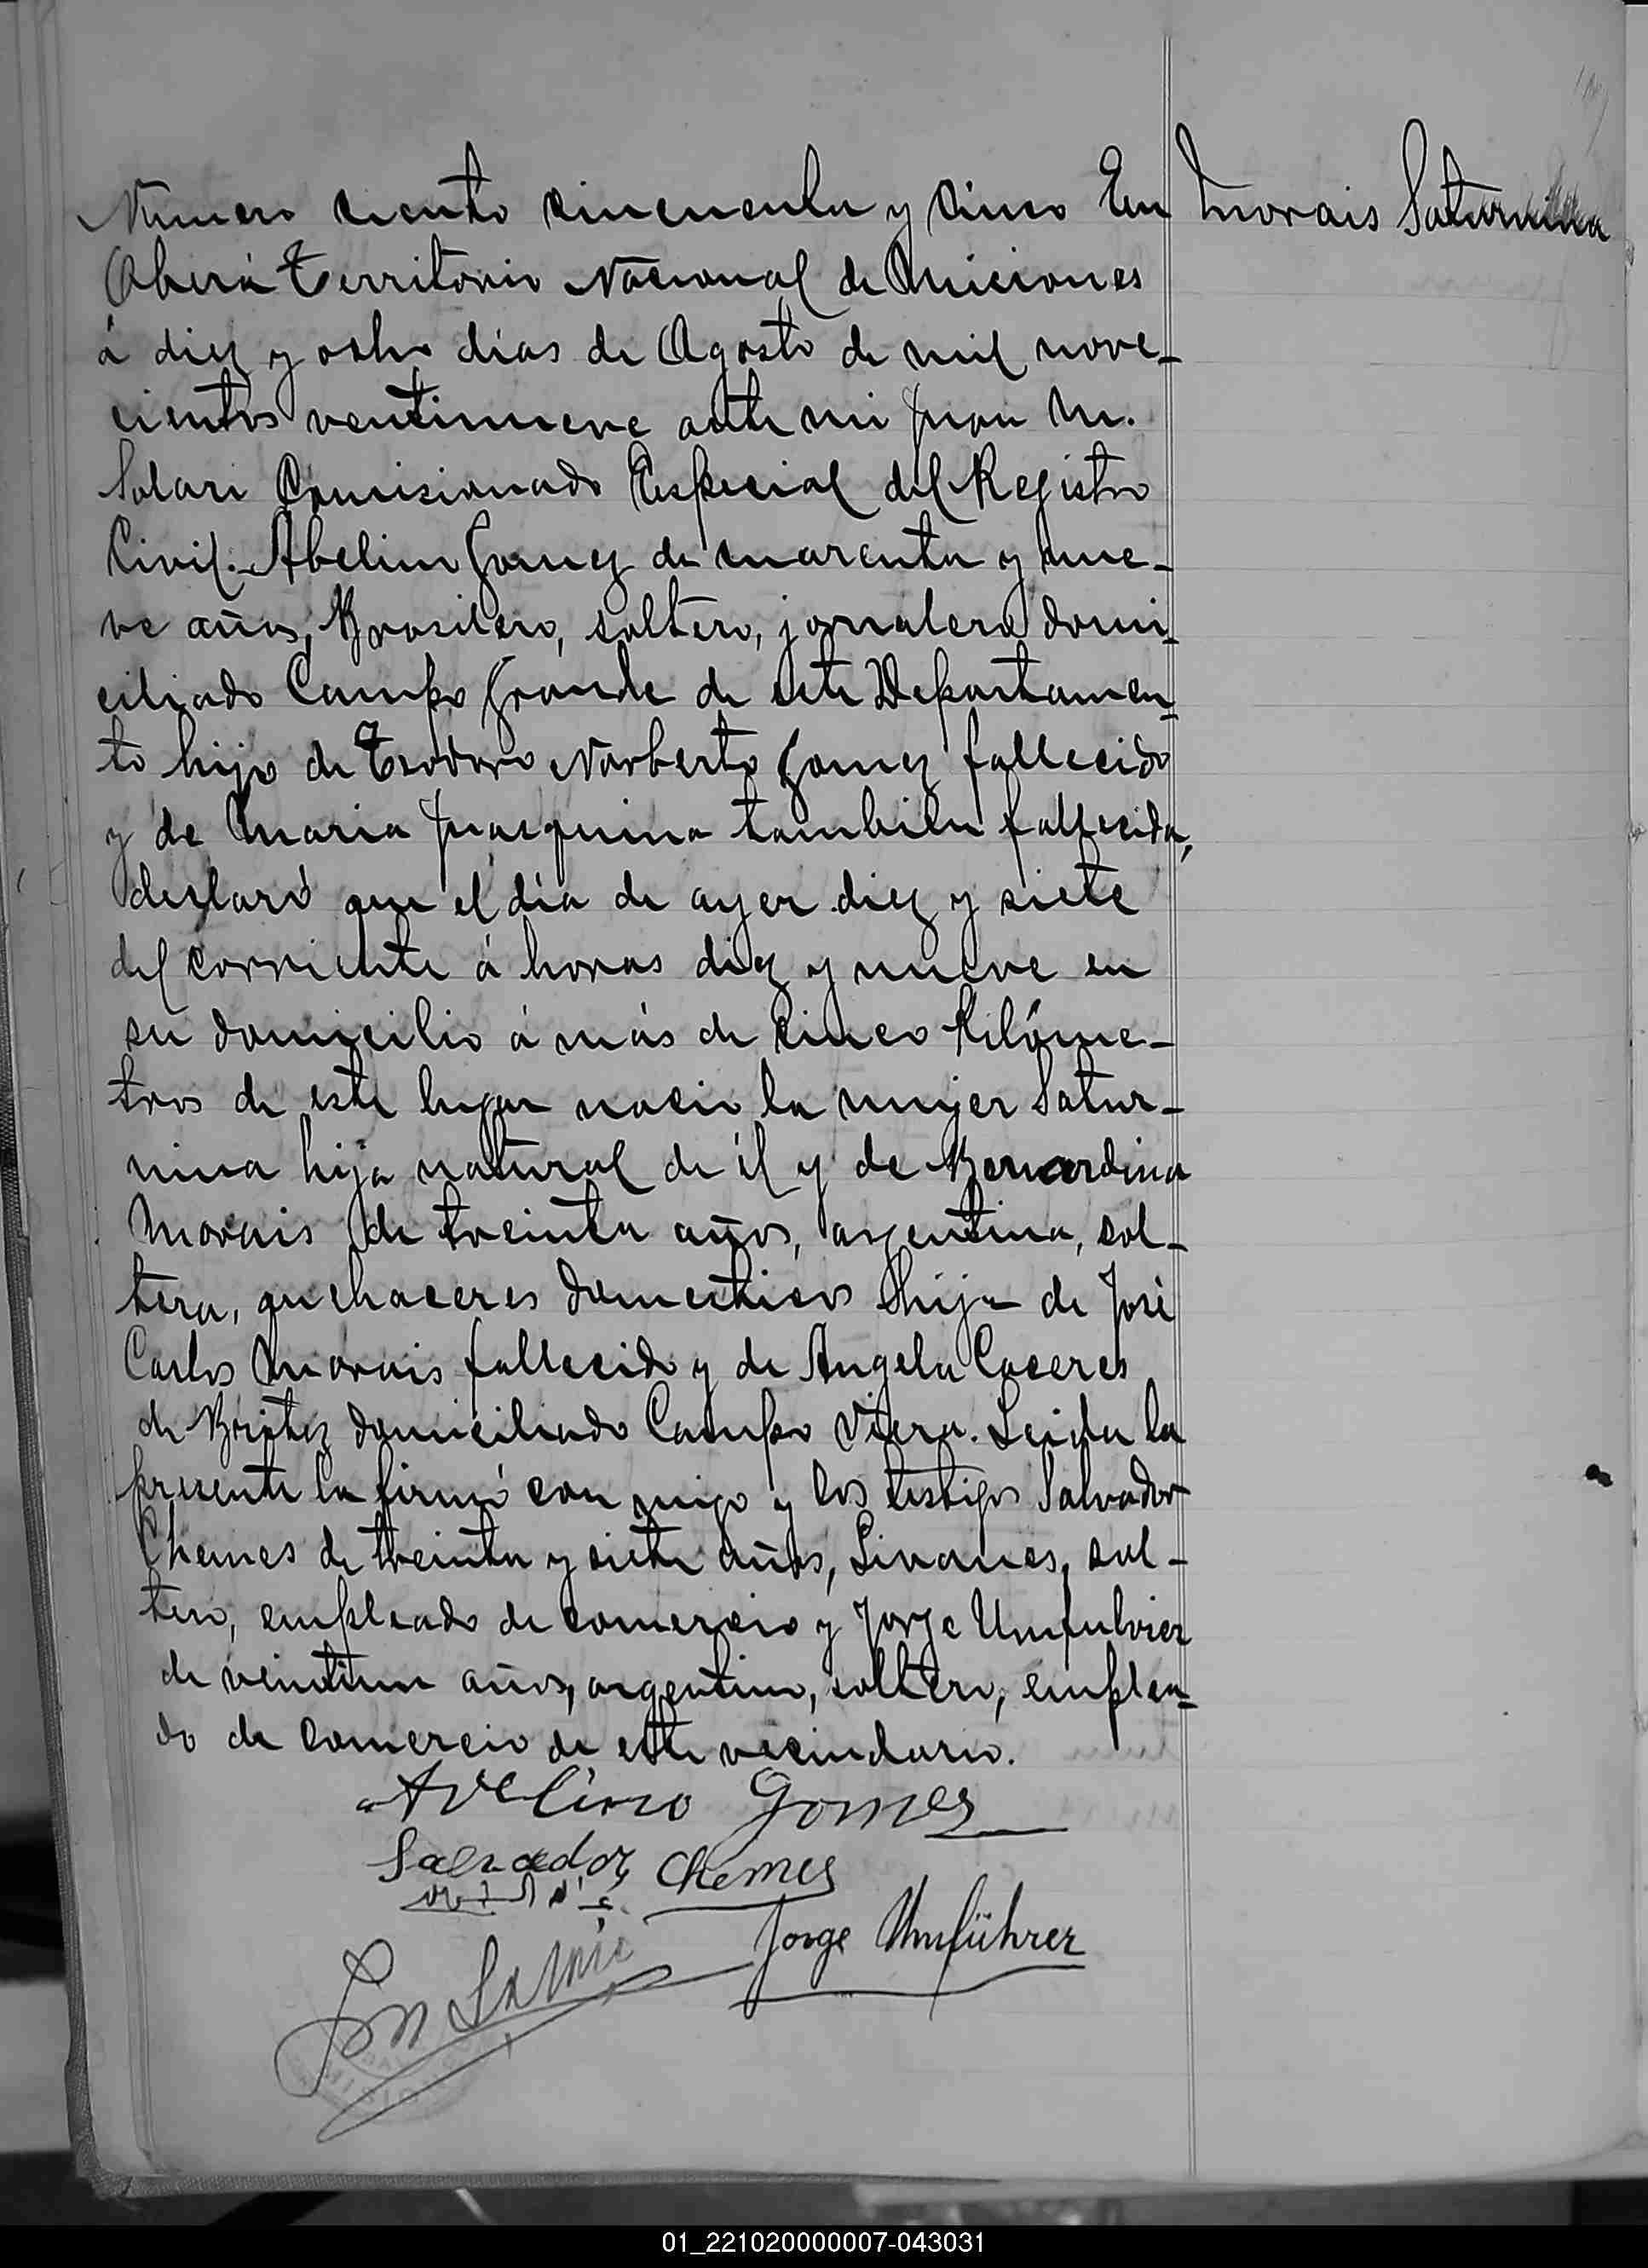 Número ciento cincuenta y cinco En
Morais Saturnina
Oberá Territorio Nacional de Miciones
á diez y ocho días de Agosto de mil nove-
cientos ventinueve ante mi Juan M.
Solari Comisionado Especial del Registro
Civil: Abelino Gomez de cuarenta y nue-
ve años, Brasilero, soltero, jornalero domi-
ciliado Campo Grande de este Departamen-
to hijo de Teodoro Norberto Gomez fallecido
y de Maria Juaquina tambien fallecida,
declaró que el día de ayer diez y siete
del corriente á horas diez y nueve en
su domicilio á más de cinco Kilóme-
tros de este lugar nació la mujer Satur-
nina hija natural de él y de Bernardina
Morais de treinta años, argentina, sol-
tera, quehaceres domesticos hija de José
Carlos Morais fallecido y de Angela Caceres
de Britez domiciliado Campo Viera. Leida la
presente la firmó con migo y los testigos Salvador
Chemes de treinta y siete años, Livanes, sol-
tero, empleado de comercio y Jorge Umfulrier
de veintiun años, argentino, soltero, emplea-
do de comercio de este vecindario.
Avelino Gomes
Salvador Chemes
Jorge Umführer